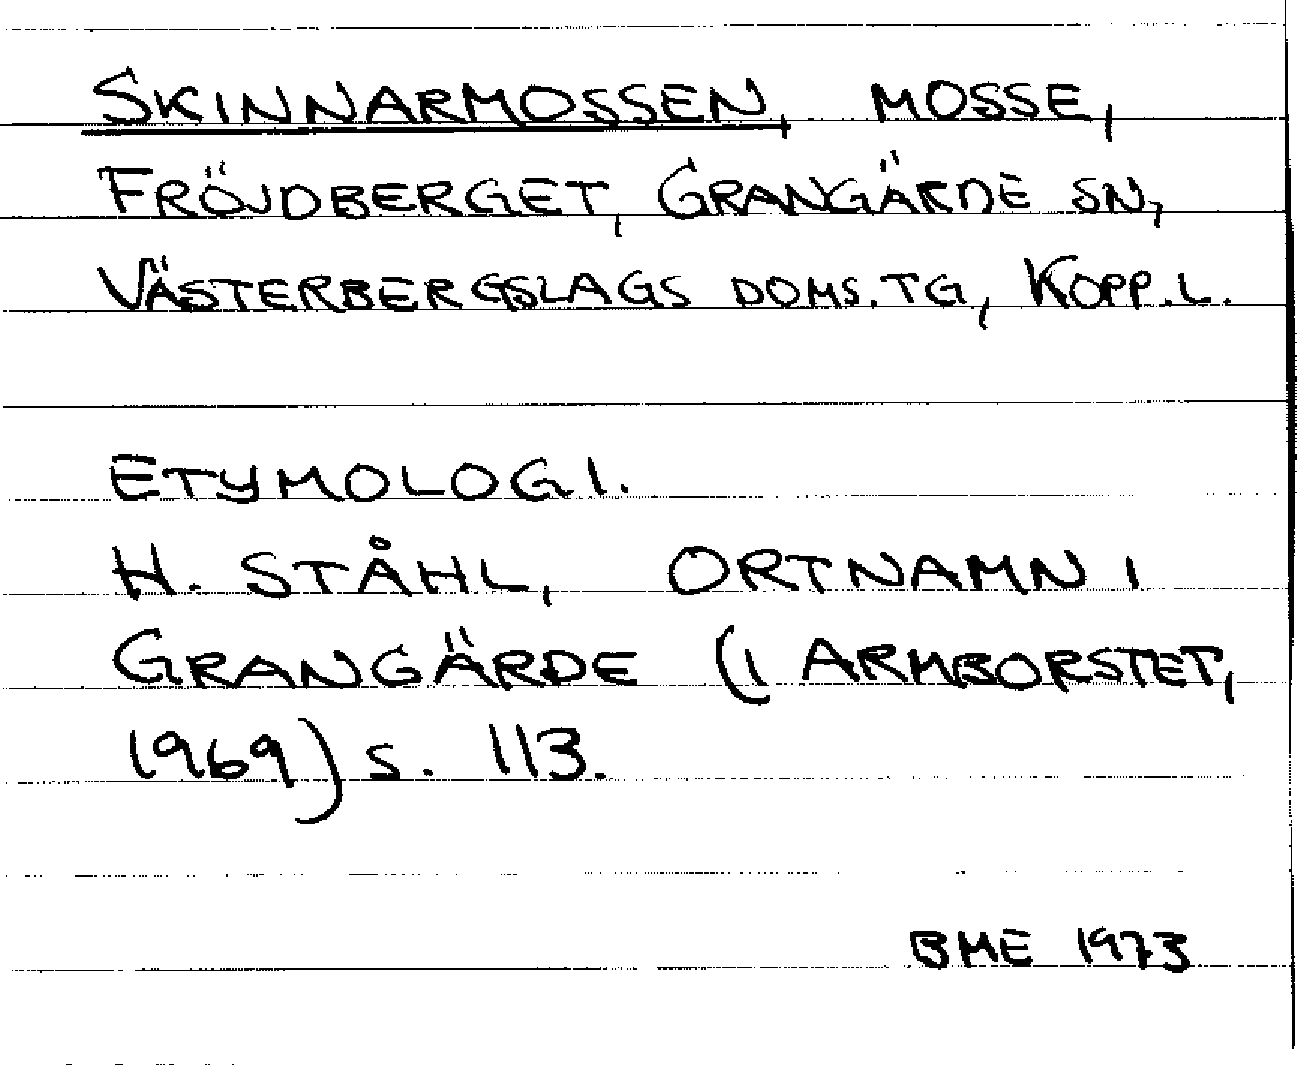 SKINNARMOSSEN, MOSSE,
FRÖJDBERGET, GRANGÄRDE SN,
VÄSTERBERGSLAGS DOMS.TG, KOPP.L.
ETYMOLOGI.
H. STÅHL, ORTNAMN I
GRANGÄRDE (I ARMBORSTET,
1969) s. 113.
BME 1973